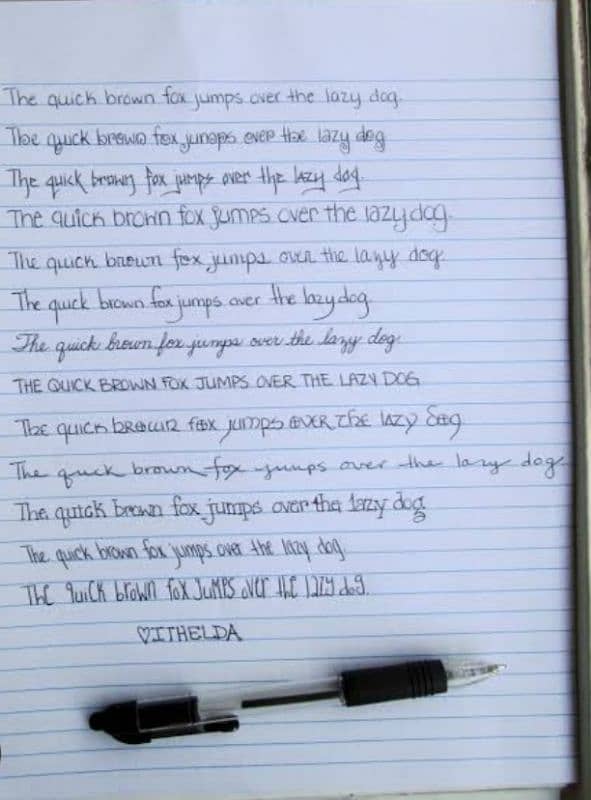 The quick brown fox jumps over the lazy dog.
The quick brown fox jumps over the lazy dog
The quick brown fox jumps over the lazy dog.
The quick brown fox jumps over the lazy dog.
The quick brown fox jumps over the lazy dog.
The quick brown fox jumps over the lazy dog
The quick brown fox jumps over the lazy dog.
THE QUICK BROWN FOX JUMPS OVER THE LAZY DOG
The quick brown fox jumps over the lazy dog
The quick brown fox jumps over the lazy dog.
The quick brown fox jumps over the lazy dog
The quick brown fox jumps over the lazy dog
The quick brown fox jumps over the lazy dog.
♡ITHELDA